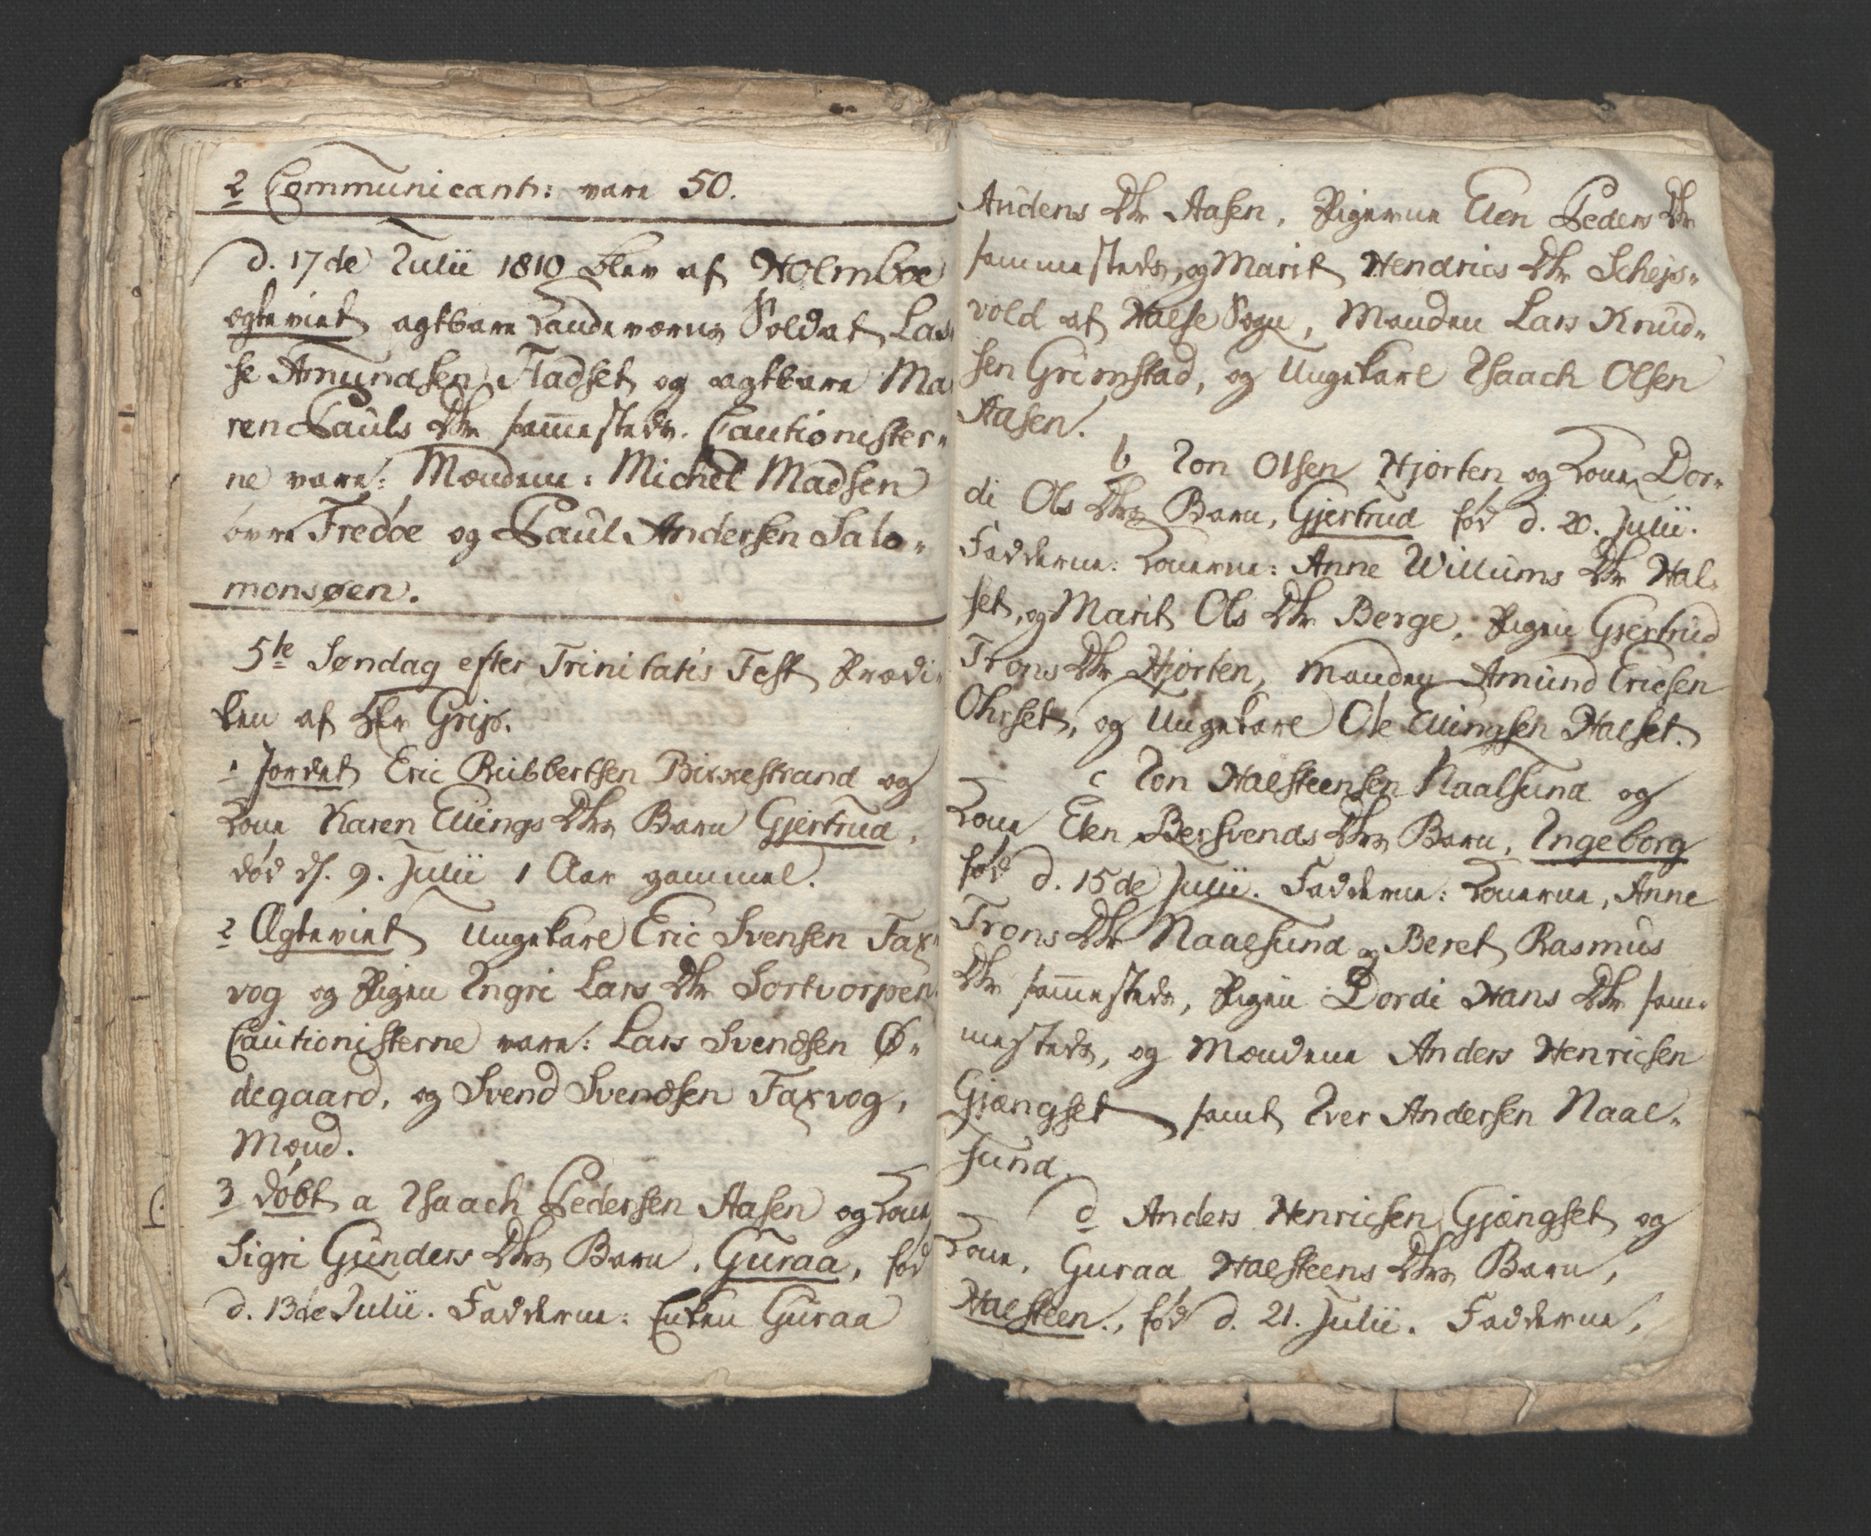 2 Communicant: vare 50.
d. 17de Julii 1810 blev af Holmboe
ægteviet agtbare Landeværns Soldat Las
se Amundsen Fladset og agtbare Ma
ren Pauls Dtr sammesteds. Cautionister-
ne vare: Mændene: Michel Madsen
övre Fredöe og Paul Andersen Salo-
monsøen.
5te Søndag efter Trinitatis Fest, Prædi-
ken af Hr Grip.
1 Jordet Eric Rubbertsen Bixxestrand og
Kone Karen Ellings Dtrs Barn Gjertrud,
död d. 9. Julii 1 Aar gammel.
2 Ægteviet Ungekarl Eric Svensen Fax-
vog og Pigen Ingri Lars Dtr Sortvorpen.
Cautionisterne vare: Lars Svendsen Ø-
degaard, og Svend Svendsen Faxvog,
Mænd.
3 döbt a Isaach Pedersen Aasen og Kone
Sigri Gunders Dtrs Barn, Guraa, föd
d. 13de Julii. Fadderne: Enken Guraa
Audens Dtr Aasen, Pigerne Elen Peders Dtr
sammesteds, og Marit Hendrics Dtr Schejs-
vold af Halse Sogn, Manden Lars Knud-
sen Grimstad, og Ungekarl Isaach Olsen
Aasen.
b Jon Olsen Hjorten og Kone Dor-
di Ols Dtrs Barn, Gjertrud föd d. 20. Julii.
Fadderne: Konerne: Anne Willums Dtr Hal-
set, og Marit Ols Dtr Berge, Pigen Gjertrud
Trons Dtr Hjorten, Manden Amund Ericsen
Ohrset, og Ungekarl Ole Ellingsen Halset.
c Jon Halsteensen Naalsund og
Kone Elen Bersvends Dtrs Barn, Ingeborg
föd d. 15de Julii. Fadderne: Konerne, Anne
Trons Dtr Naalsund og Beret Rasmus
Dtr sammesteds, Pigen Dordi Hans Dtr sam-
mesteds, og Mændene Anders Henricsen
Gjængset samt Iver Andersen Naal-
sund.
d Anders Henricsen Gjængset og
Kone, Guraa Halsteens Dtrs Barn,
Halsteen, föd d. 21. Julii. Fadderne,